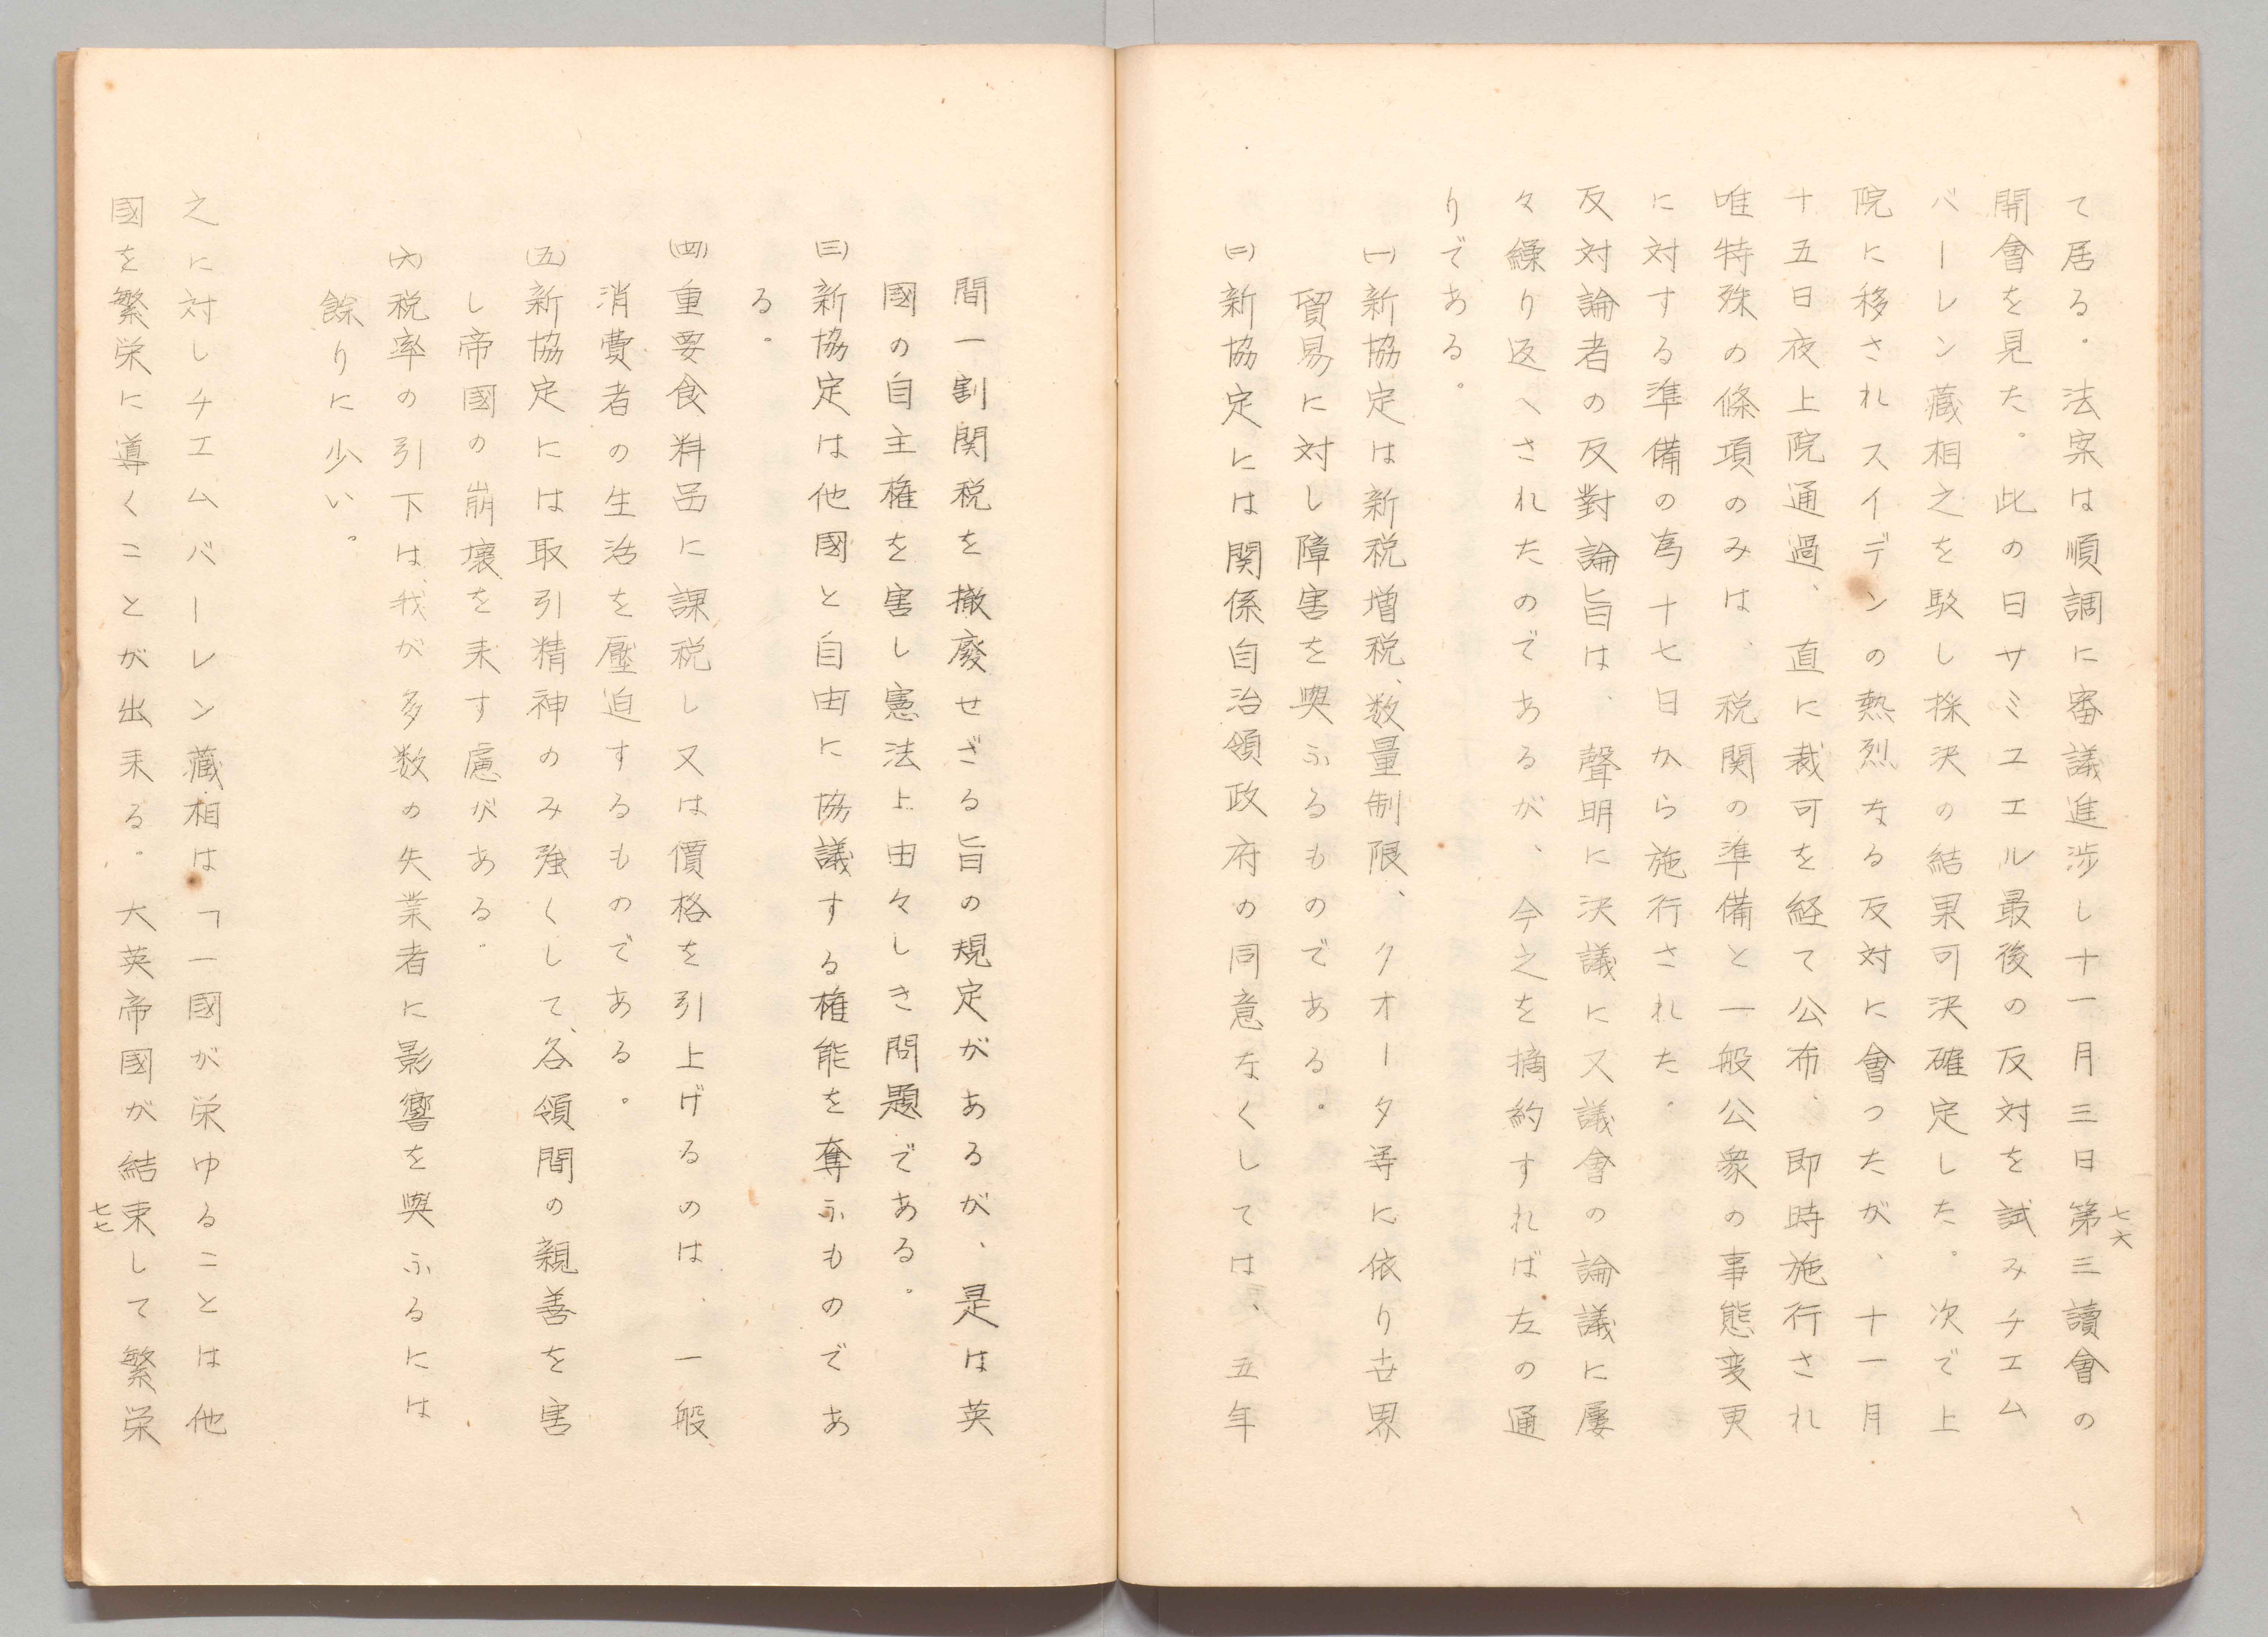 七六
て居る。法案は順調に審議進渉し十一月三日第三讀會の
開會を見た。此の日サミユエル最後の反対を試みチエム
バーレン藏相之を駁し採決の結果可決確定した。次で上
院に移されスイデンの熱烈なる反対に會つたが、十一月
十五日夜上院通過、直に裁可を経て公布、即時施行され
唯特殊の條項のみは、税関の準備と一般公衆の事態変更
に対する準備の為十七日から施行された。
反対論者の反對論旨は、聲明に決議に又議會の論議に屡
々繰り返へされたのであるが、今之を摘約すれば左の通
りである。
(一)新協定は新税増税、数量制限、クオータ等に依り世界
貿易に対し障害を與ふるものである。
(二)新協定には関係自治領政府の同意なくしては、五年
間一割関税を撤廢せざる旨の規定があるが、是は英
國の自主権を害し憲法上由々しき問題である。
(三)新協定は他國と自由に協議する権能を奪ふものであ
る。
(四)重要食料品に課税し又は價格を引上げるのは、一般
消費者の生活を壓迫するものである。
(五)新協定には取引精神のみ強くして、各領間の親善を害
し帝國の崩壞を来す慮がある。
(六)税率の引下は、我が多数の失業者に影響を與ふるには
餘りに少い。
之に対しチエムバーレン藏相は「一國が栄ゆることは他
國を繁栄に導くことが出来る。大英帝國が結束して繁栄
七七